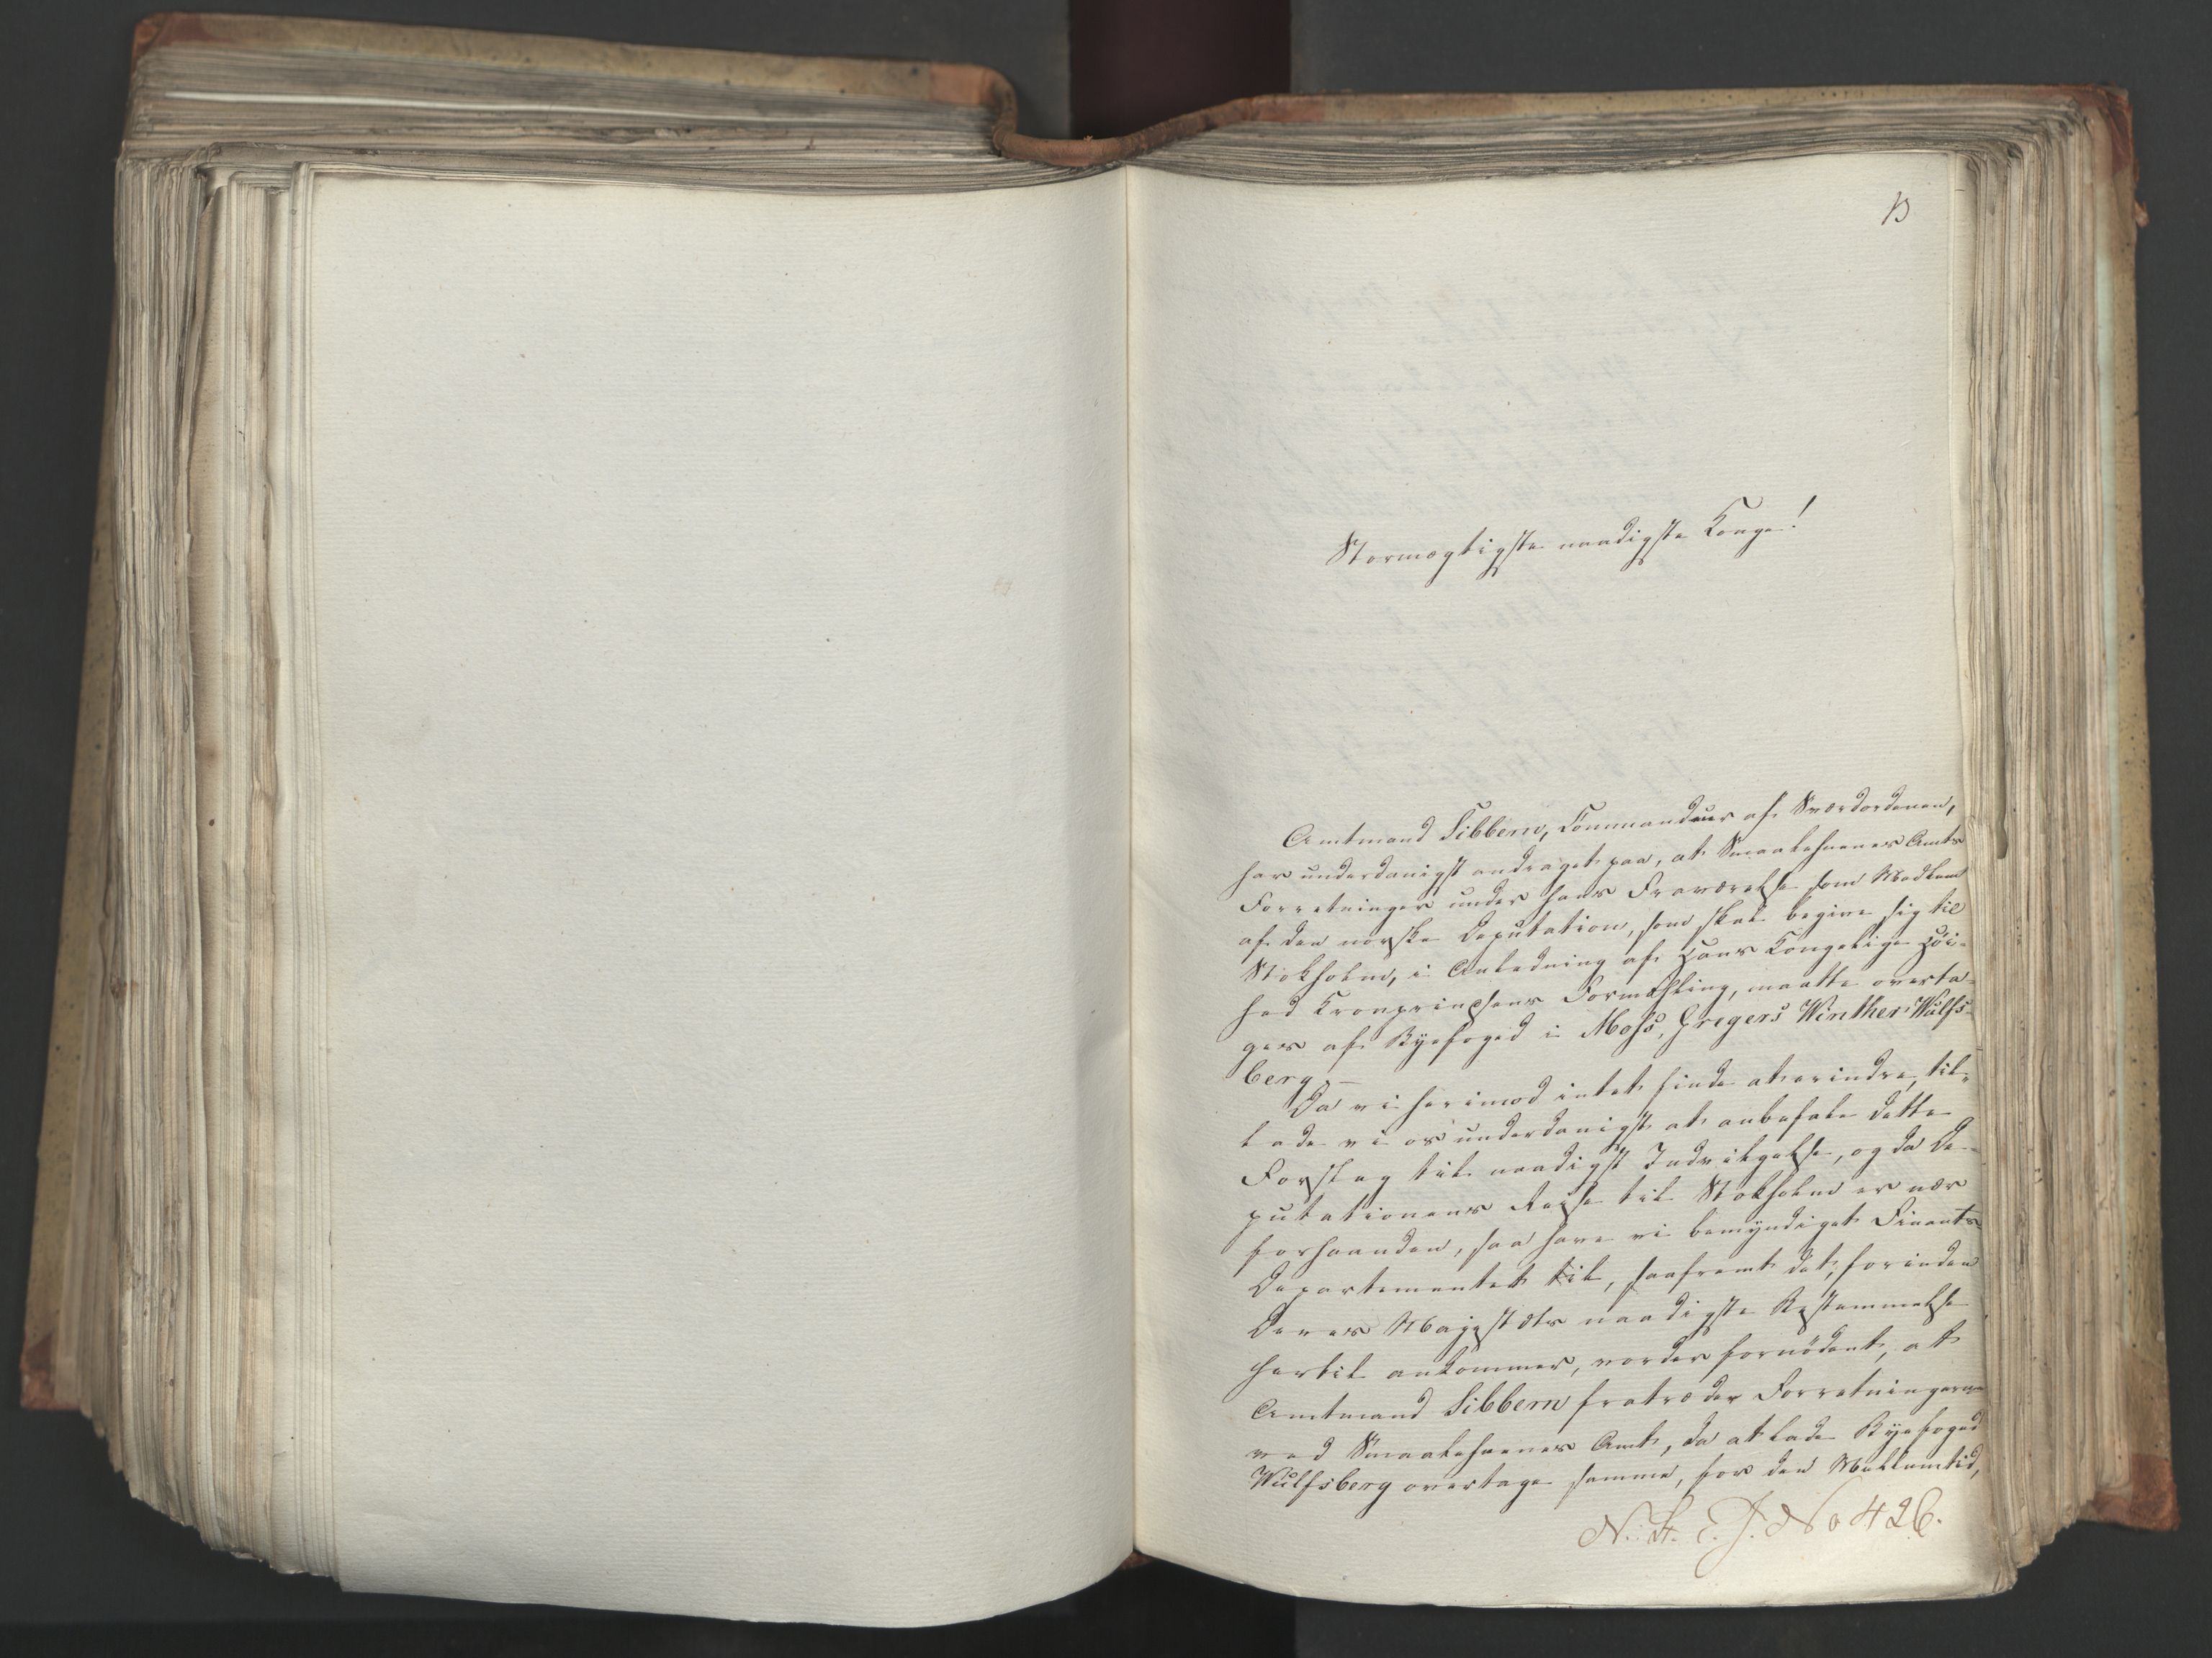 13
Stormægtigste naadigste Konge!
Amtmand Sibbern, Commandeur af Sværdordenen,
har underdanigst andraget paa, at Smaalehnenes Amts
Forretninger under hans Fraværelse som Medlem
af den norske Deputation, som skal begive sig til
Stokholm, i Anledning af Hans Kongelige Høi-
hed Kronprindsens Formæhling, maatte overta-
ges af Byefoged i Moss, Gregers Winther Wulfs-
berg. —
Da vi herimod intet finde at erindre, til-
lade vi os underdanigst at anbefale dette
Forslag til naadigst Indvilgelse, og da De-
putationens Reise til Stokholm er nær
forhaanden, saa have vi bemyndiget Finants-
Departementet til, saafremt det, forinden
Deres Majestæts naadigste Bestemmelse
hertil ankommer, vorder fornødent, at
Amtmand Sibbern fratræder Forretningerne
ved Smaalehnenes Amt, da at lade Byefoged
Wulfsberg overtage samme, for den Mellemtid,
N. St. E. J. No 426.